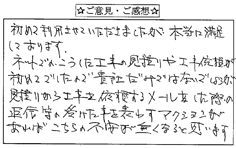 ☆ご意見・ご感想☆
初めて利用させていただきましたが本当に満足
しております。
ネットでのこうした工事の見積りや工事依頼が
初めてでしたので貴社だけではないでしょうが
見積りから工事を依頼するメールをした際の
返信等の受けた事を表わすアクションが
あればこちらの不安が無くなると思います